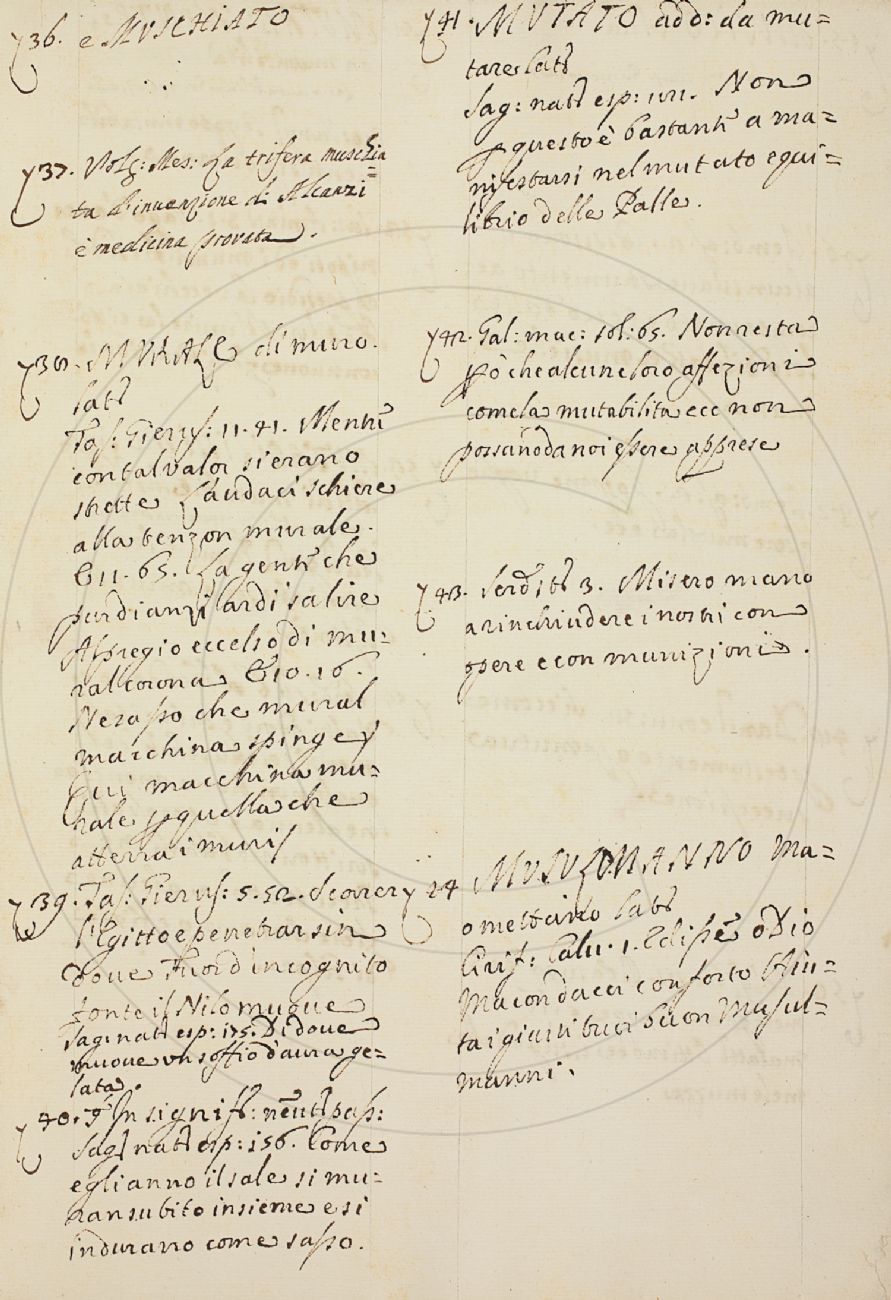 36. e MUSCHIATO
37. Volg: Mes: La trifera muschia
ta d'invenzione di Alcanzi
è medicina provata.
38. MURALE di muro.
Tass: Gierus: 11. 41. Mentr
con tal valor si erano
strette L'audaci schiere
alla tenzon murale.
E 11. 65. La gente che
pur dianzi ardì salire
Al pregio eccelso di mu=
ral corona E 10. 16.
Ne sasso che mural
macchina spinge
Qui macchina mu=
rale p quella che
atterra i muri
39. Tas: Gierus: 5. 52. Scorrer
l'Egitto e penetrar sin
dove Fuor d'incognito
fonte il Nilo muove
Sag: nat: esp: 175. Di dove
muove un soffio d'aura ge=
lata.
40. In signif: neut: pas:
Sag: nat: esp: 156. Come
egli anno il sale si mu=
ran subito insieme e si
indurano come sasso.
41. MUTATO add: da mu=
tare
Sag: nat: esp: 121. Non
p questo è bastante a ma=
nifestarsi nel mutato equi=
librio delle Palle.
42. Gal: mac: sol: 65. Non resta
pò che alcune loro affezioni
come la mutabilità ecc non
possano da noi essere apprese
43. Serd: 3. Misero mano
a rinchiudere i nostri con
opere e con munizioni.
24 MUSULMANNO ma=
omettano
Cirif: Calv. 1. E disse o Dio
Macon dacci conforto Aiu=
ta i giusti tuoi buon Musul=
manni.